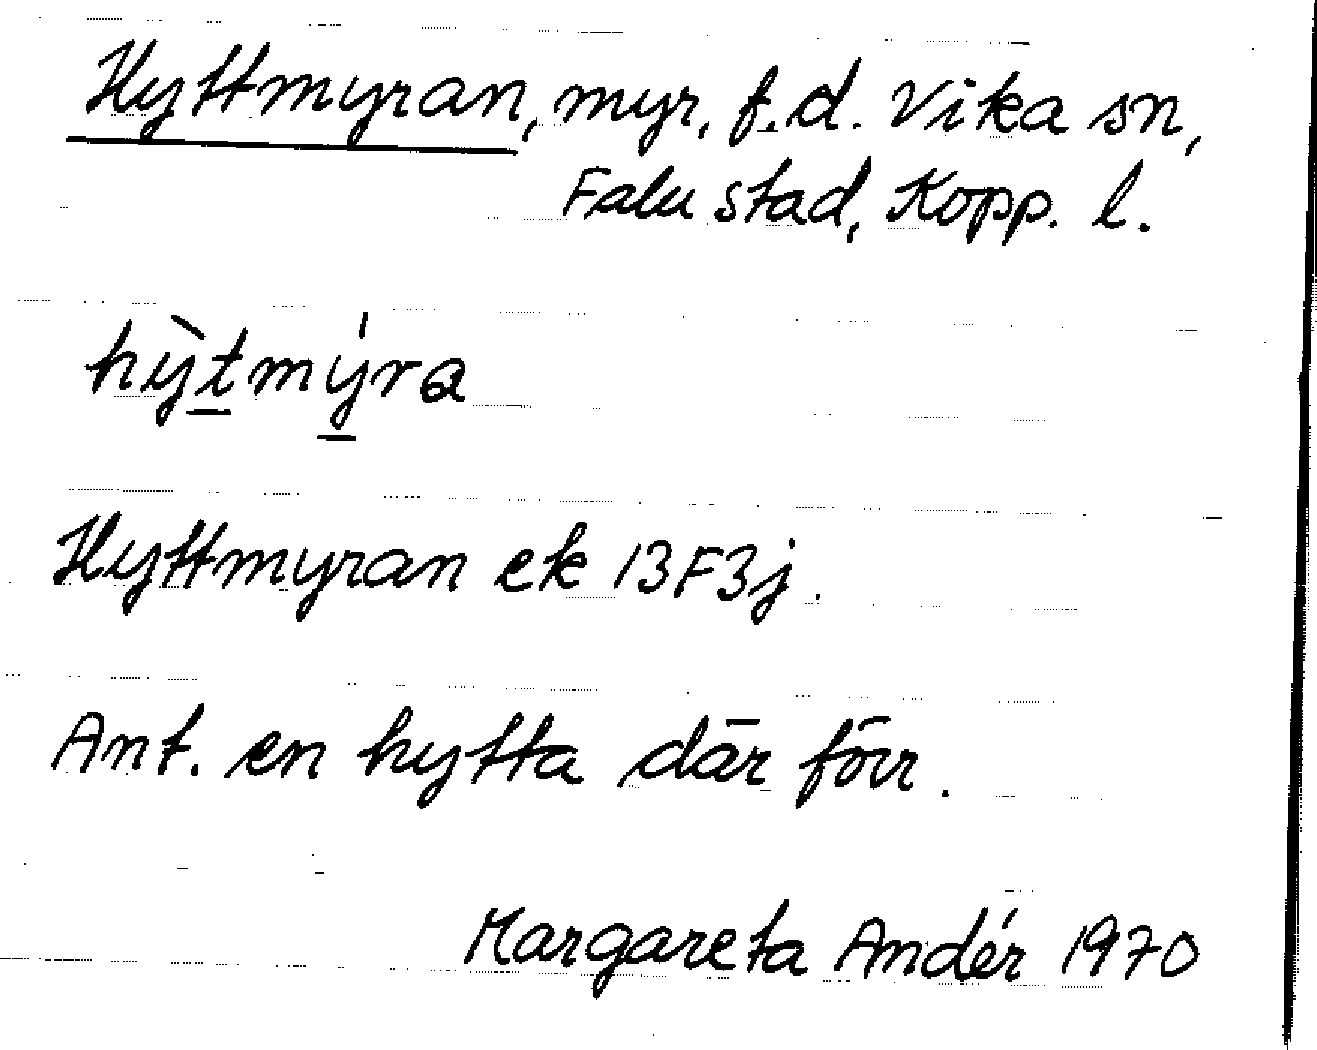 Hyttmyran, myr, f.d. Vika sn,
Falu stad, Kopp. l.
hy̆̀t̲mý̲ra
Hyttmyran ek 13F3j.
Ant. en hytta där förr.
Margareta Andér 1970